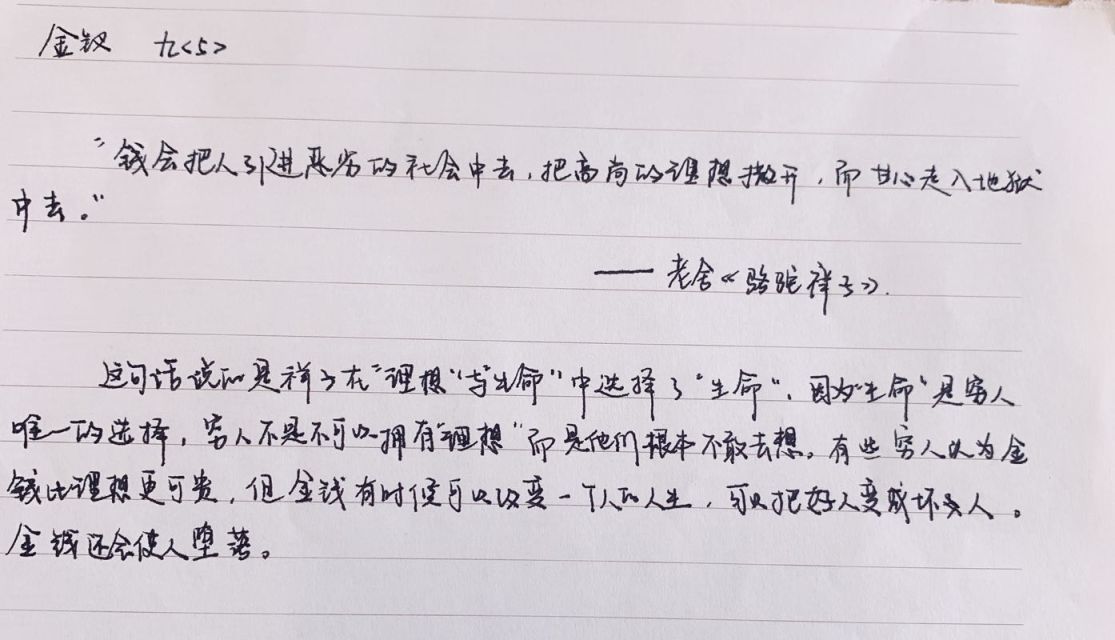 金钗 九<5>
“钱会把人引进恶劣的社会中去,把高尚的理想撇开,而甘心走入地狱
中去。”
——老舍《骆驼祥子》.
这句话说的是祥子在“理想“与“生命”中选择了“生命“,因为“生命”是穷人
唯一的选择,穷人不是不可以拥有“理想”而是他们根本不敢去想。有些穷人认为金
钱比理想更可贵,但金钱有时候可以改变一个人的人生,可以把好人变成坏人。
金钱还会使人堕落。